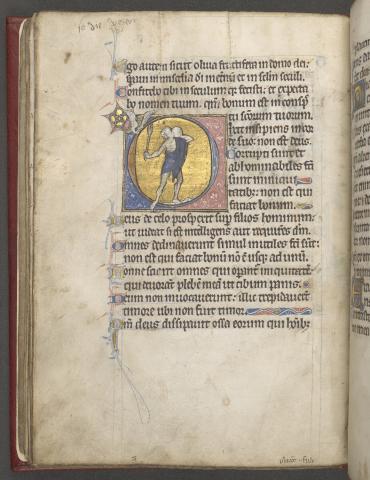 go autem sicut oliua fructifera in domo dei:
in misericordia dei mei in eternum et in seculum seculi.
Confitebor tibi in seculum quia fecisti: et expecta
bo nomen tuum. quoniam bonum est in conspectu
tu sanctorum tuorum.
Dixit insipiens in cor
de suo: non est deus.
Corrupti sunt et
abhominabiles facti
sunt in iniqui
tatibus: non est qui
faciat bonum.
Deus de celo prospexit super filios hominum:
ut uideat si est intelligens aut requirens deum.
Omnes declinauerunt simul inutiles facti sunt:
non est qui faciat bonum non est usque ad unum.
Nonne scient omnes qui operantur iniquitatem:
qui deuorant plebem meam ut cibum panis.
Deum non inuocauerunt: illic trepidauerunt
timore ubi non fuit timor.
Quoniam deus dissipauit ossa eorum qui homi